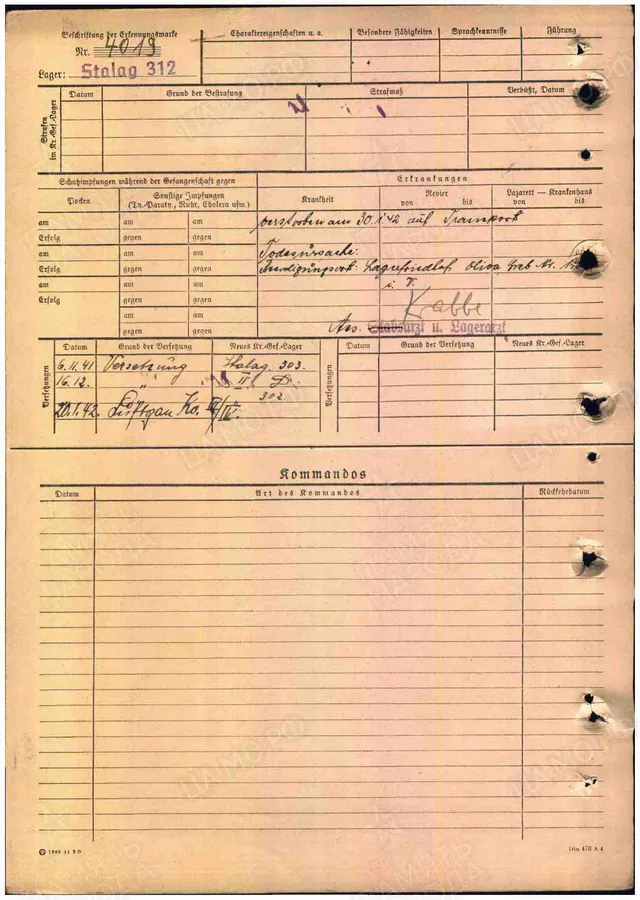 Beschriftung der Erkennungsmarke
Nr. 4019
Lager: Stalag 312
Charaktereigenschaften u. a.
Besondere Fähigkeiten
Sprachkenntnisse
Führung
Strafen im Kr.-Gef.-Lager
Datum
Grund der Bestrafung
Strafmaß
Verbüßt, Datum
Schutzimpfungen während der Gefangenschaft gegen
Erkrankungen
Pocken
Sonstige Impfungen
(Ty.-Paraty., Ruhr, Cholera usw.)
Krankheit
Revier
von bis
Lazarett — Krankenhaus
von bis
am am am
verstorben am 30.1.42 auf Transport
Erfolg gegen gegen
am am am
Todesursache:
Erfolg gegen gegen
Beerdigungsort: Lagerfriedhof Oliva Grab Nr.
am am am
i. V.
Erfolg gegen gegen
Krabbe
am am
gegen gegen
Ass. Stabsarzt u. Lagerarzt
Versetzungen
Datum
Grund der Versetzung
Neues Kr.-Gef.-Lager
6.11.41 Versetzung Stalag 303.
16.12. " " II D.
302
20.1.42. Luftgau Ko.
Versetzungen
Datum
Grund der Versetzung
Neues Kr.-Gef.-Lager
Kommandos
Datum
Art des Kommandos
Rückkehrdatum
Din 476 A 4
ЦАМО.РФ
ПАМЯТЬ НАРОДА